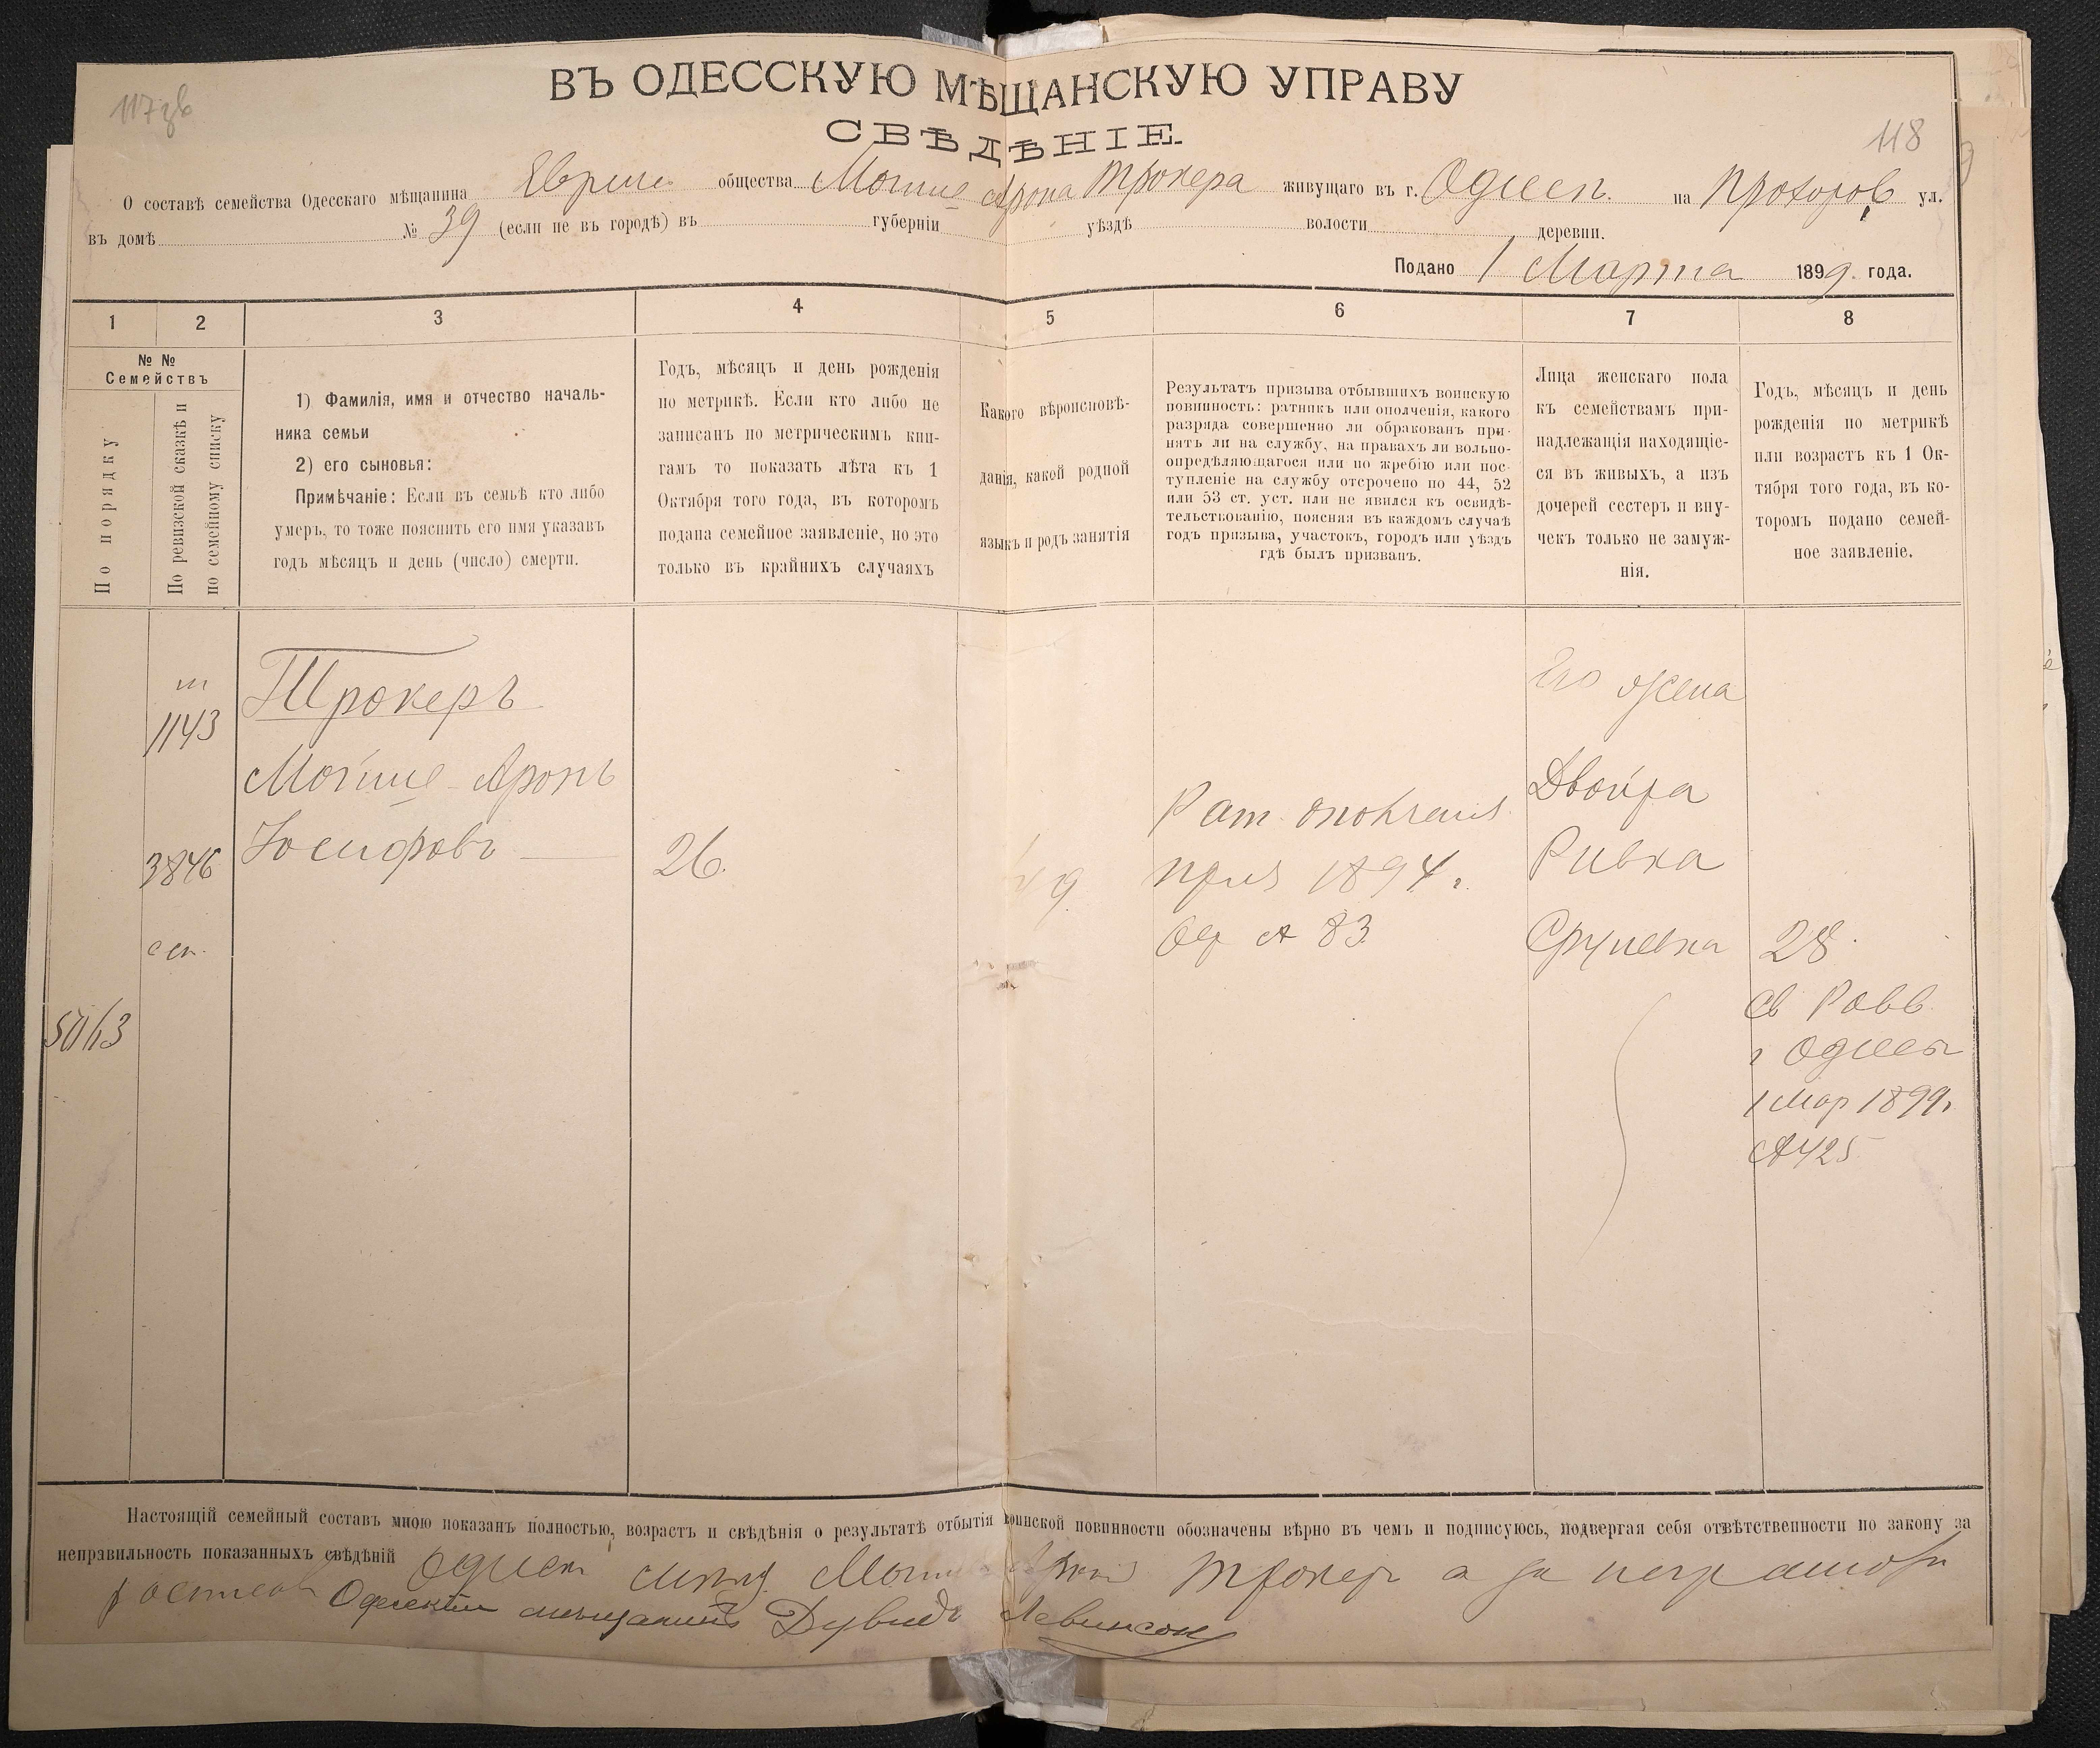 ВЪ ОДЕССКУЮ МѢЩАНСКУЮ УПРАВУ
СВѢДѢНІЕ.
118
О составѣ семейства Одесскаго мѣщанина общества Мошие Арона Трокера живущаго въ г. Одессѣ на Прохоров ул.
въ домѣ № 39 (если не въ городѣ) въ губерніи уѣздѣ волости деревни.
Подано 1 Марта 1899. года.
1 2 3 4 5 6 7 8
№ №
Семействъ
По порядку
По ревизской сказкѣ и
по семейному списку
1) Фамилія, имя и отчество началь-
ника семьи
2) его сыновья:
Примѣчаніе: Если въ семьѣ кто либо
умеръ, то тоже пояснить его имя указавъ
годъ мѣсяцъ и день (число) смерти.
Годъ, мѣсяцъ и день рожденія
по метрикѣ. Если кто либо не
записанъ по метрическимъ кни-
гамъ то показать лѣта къ 1
Октября того года, въ которомъ
подана семейное заявленіе, но это
только въ крайнихъ случаяхъ
Какого вѣроисповѣ-
данія, какой родной
языкъ и родъ занятія
Результатъ призыва отбывшихъ воинскую
повинность: ратникъ или ополченія, какого
разряда совершенно ли обракованъ при-
нятъ ли на службу, на правахъ ли вольно-
опредѣляющагося или по жребію или пос-
тупленіе на службу отсрочено по 44, 52
или 53 ст. уст. или не явился къ освидѣ-
тельствованію, поясняя въ каждомъ случаѣ
годъ призыва, участокъ, городъ или уѣздъ
гдѣ былъ призванъ.
Лица женскаго пола
къ семействамъ при-
надлежащія находящіе-
ся въ живыхъ, а изъ
дочерей сестеръ и вну-
чекъ только не замуж-
нія.
Годъ, мѣсяцъ и день
рожденія по метрикѣ
или возрастъ къ 1 Ок-
тября того года, въ ко-
торомъ подано семей-
ное заявленіе.
1143
3846
5063
Трокеръ
Мойше Аронъ
Іосифовъ
26.
Рат. ополченія
приз 1894 г.
83
Его жена
Двойра
Ривка
Сруневна
28.
Св Равв
г Одессы
1 Мар 1899г
425
Настоящій семейный составъ мною показанъ полностью, возрастъ и свѣдѣнія о результатѣ отбытія воинской повинности обозначены вѣрно въ чемъ и подписуюсь, подвергая себя отвѣтственности по закону за
неправильность показанныхъ свѣдѣній Одесск Трокер а за неграмотн
Одесскій мѣщанинъ Дувидъ Левинсон